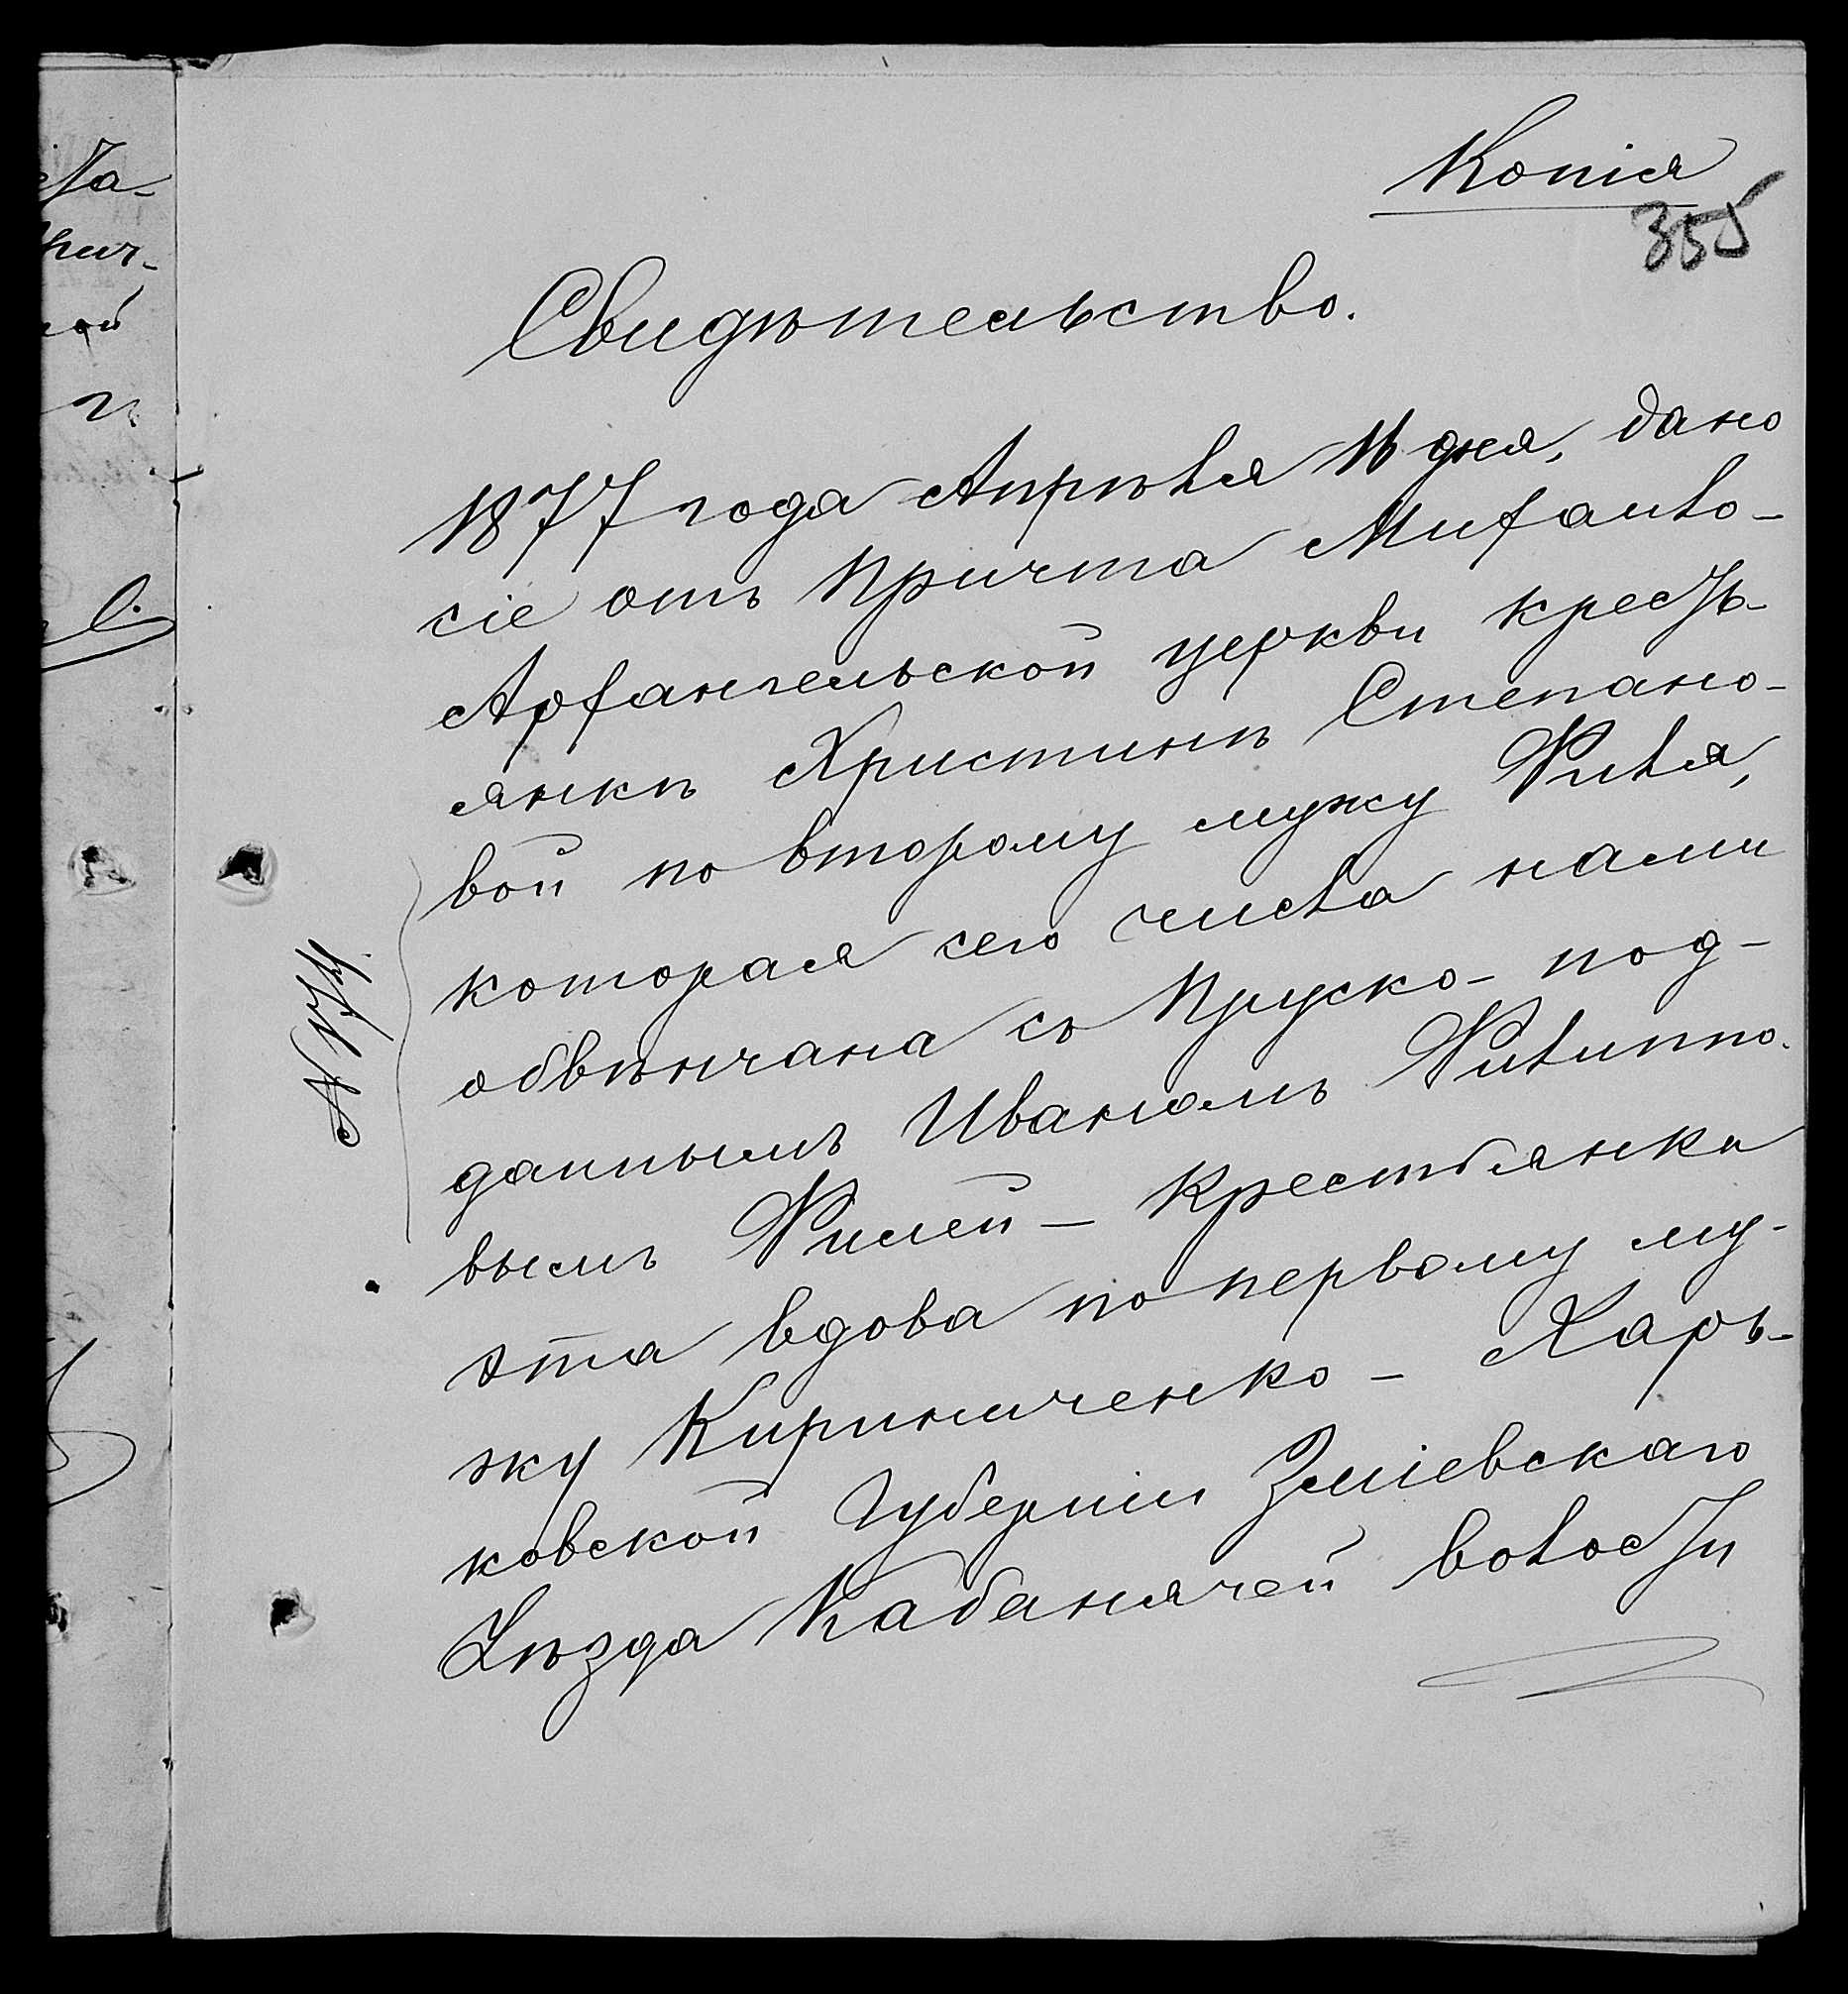 Копія
355
Свидѣтельство.
1877 года Апрѣля 16 дня, дано
сіе отъ Причта Михайло-
Архангельской церкви кресть-
янкѣ Христинѣ Степано-
вой по второму мужу Филя,
которая сего числа нами
обвѣнчана съ Пруско-под-
даннымъ Иваномъ Филиппо-
вымъ Филей - Крестьянка
эта вдова по первому му-
жу Кириниченко - Харь-
ковской Губерніи Зміевскаго
Уѣзда Кабанячей волости